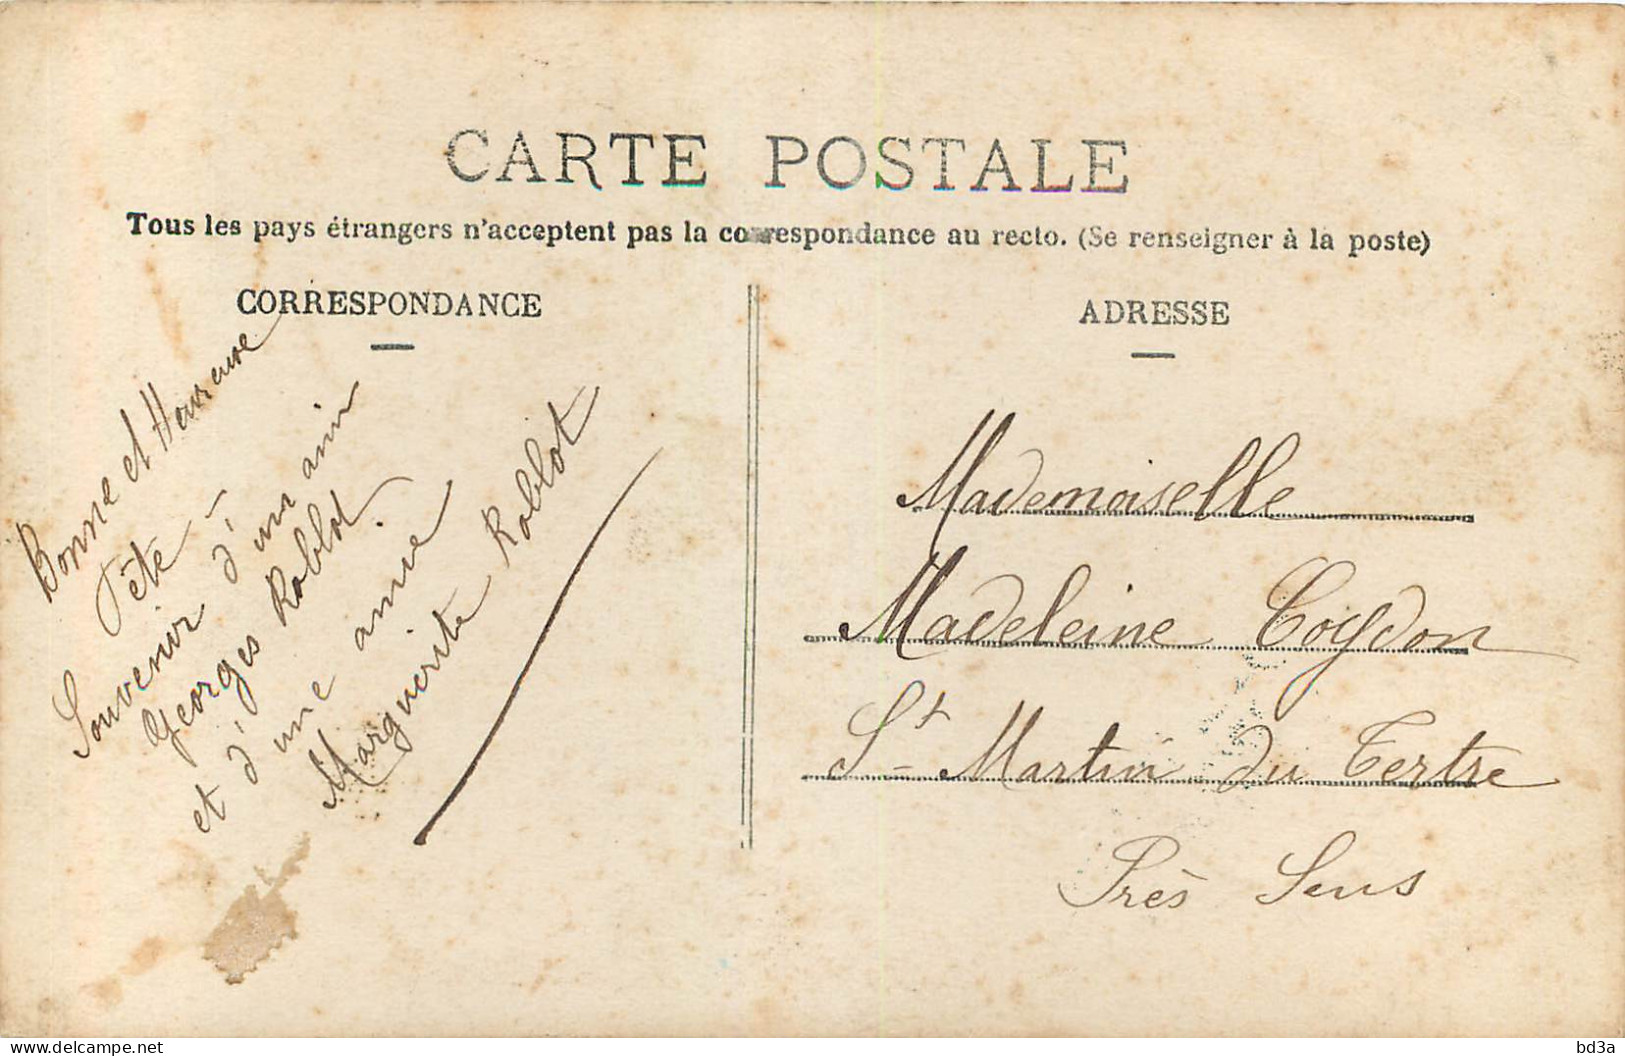 CARTE POSTALE
Tous les pays étrangers n'acceptent pas la correspondance au recto. (Se renseigner à la poste)
CORRESPONDANCE
Bonne et Heureuse
Fête
Souvenir d'un ami
Georges Roblot
et d'une amie
Marguerite Roblot
ADRESSE
Mademoiselle
Madeleine Coydon
St Martin du Tertre
Près Sens
delcampe.net
bd3a